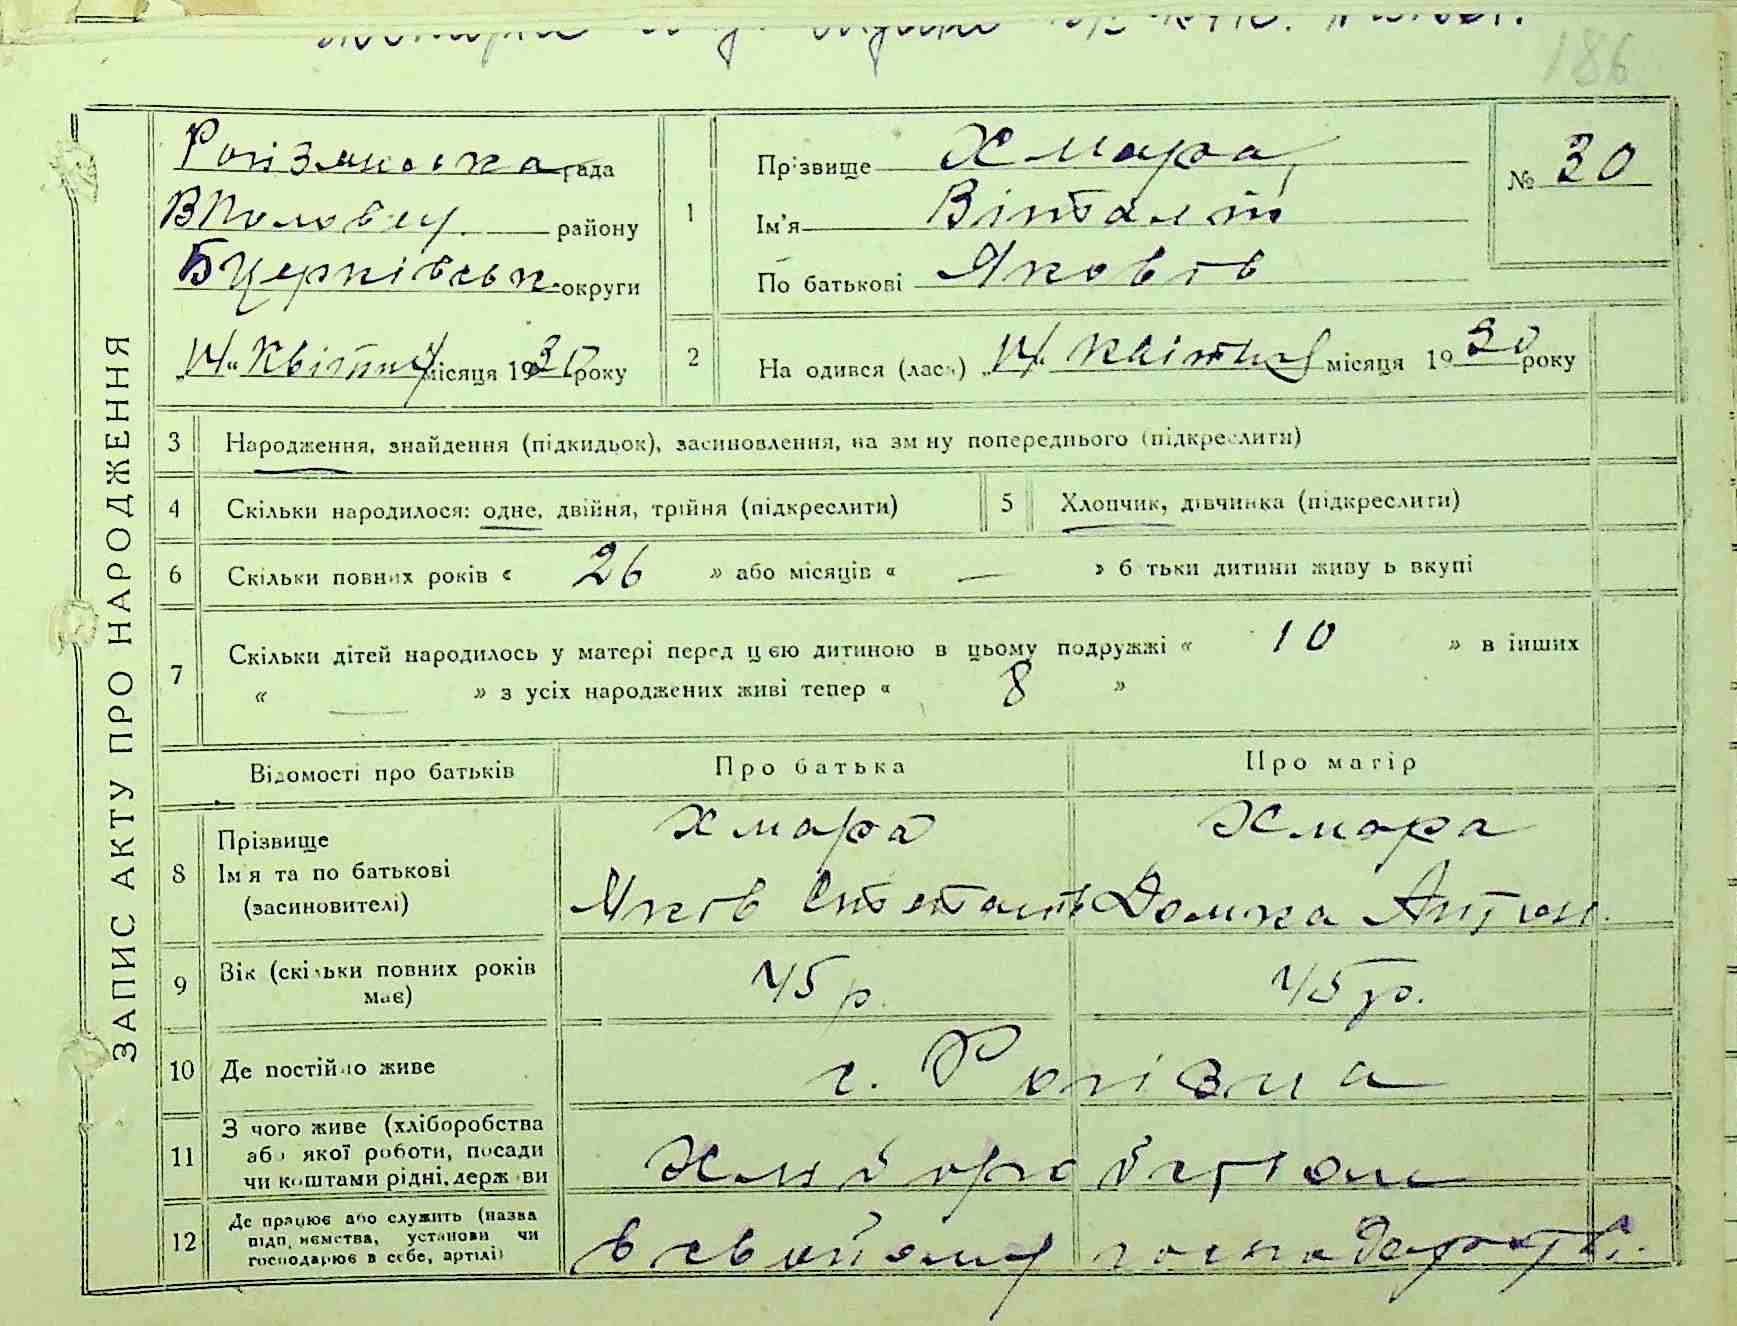 186
ЗАПИС АКТУ ПРО НАРОДЖЕННЯ
Рогізнянська рада
ВПоловец. району
БЦерківськ. округи
„14“ Квітня місяця 1930 року
1
Прізвище Хмара
Ім'я Віталій
По батькові Яковів
№ 30
2
На одився (лась) „14“ квітня місяця 1930 року
3 Народження, знайдення (підкидьок), засиновлення, на зміну попереднього (підкреслити)
4 Скільки народилося: одне, двійня, трійня (підкреслити)
5 Хлопчик, дівчинка (підкреслити)
6 Скільки повних років « 26 » або місяців « — » б тьки дитини живу ь вкупі
7 Скільки дітей народилось у матері перед цією дитиною в цьому подружжі « 10 » в інших
« — » з усіх народжених живі тепер « 8 »
Відомості про батьків
Про батька
Про матір
8
Прізвище
Ім'я та по батькові
(засиновителі)
Хмара
Яків Степанів
Хмара
Домка Антон.
9
Вік (скільки повних років
має)
45 р.
45 р.
10 Де постійно живе
с. Рогізна
11
З чого живе (хліборобства
або якої роботи, посади
чи коштами рідні, держ ви
Хліборобством
12
Де працює або служить (назва
підп иємства, установи чи
господарює в себе, артілі)
в свойому господарстві.